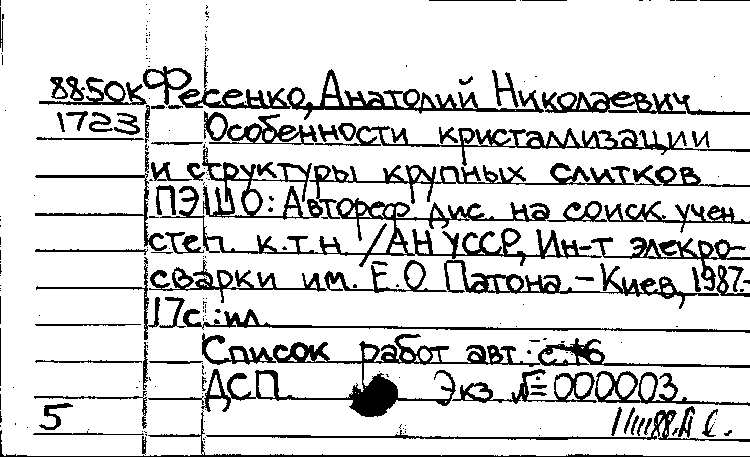 88.50к Фесенко, Анатолий Николаевич
1723 Особенности кристаллизации
и структуры крупных слитков
ПЭШО: Автореф дис. на соиск. учен
степ. к.т.н /АН УССР, Ин-т элекро-
сварки им. Е.О. Патона. – Киев, 1987.-
17с.:ил.
Список работ авт.: с.16
ДСП. Экз. №000003.
5